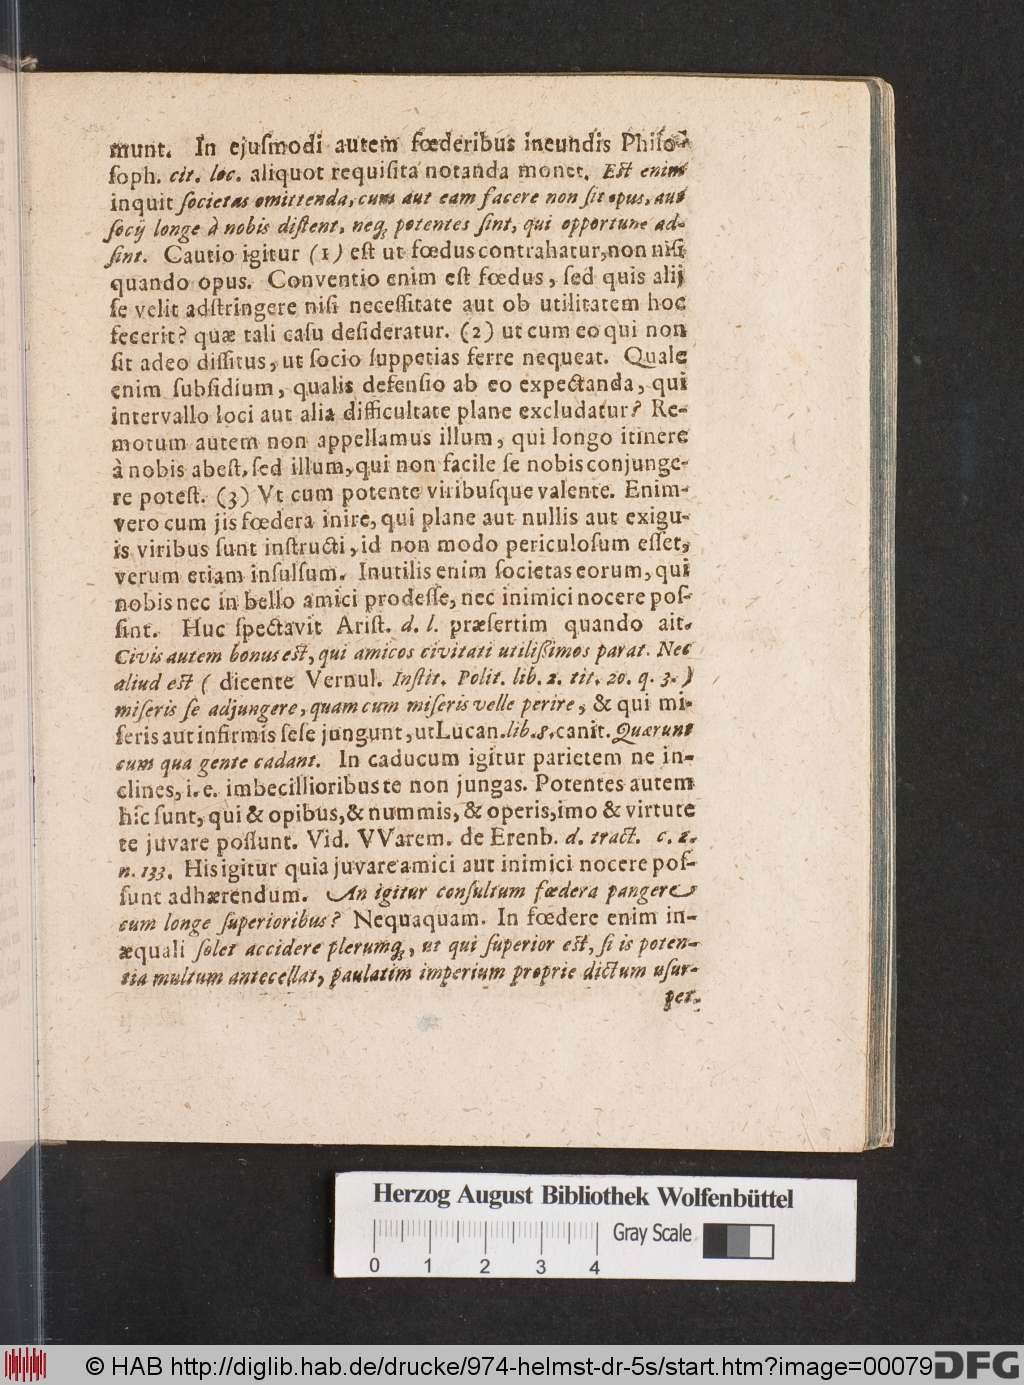 munt. In ejuſmodi autem fœderibus ineundis Philo-
ſoph. cit. loc. aliquot requiſita notanda monet. Eſt enim
inquit ſocietas omittenda, cum aut eam facere non ſit opus, aut
ſocij longe à nobis diſtent, neq; potentes ſint, qui opportune ad-
ſint. Cautio igitur (1) eſt ut fœdus contrahatur, non niſi
quando opus. Conventio enim eſt fœdus, ſed quis alij
ſe velit adſtringere niſi neceſſitate aut ob utilitatem hoc
fecerit? quæ tali caſu deſideratur. (2) ut cum eo qui non
ſit adeo diſſitus, ut ſocio ſuppetias ferre nequeat. Quale
enim ſubſidium, qualis defenſio ab eo expectanda, qui
intervallo loci aut alia difficultate plane excludatur? Re-
motum autem non appellamus illum, qui longo itinere
à nobis abeſt, ſed illum, qui non facile ſe nobis conjunge-
re poteſt. (3) Vt cum potente viribuſque valente. Enim-
vero cum jis fœdera inire, qui plane aut nullis aut exigu-
is viribus ſunt inſtructi, id non modo periculoſum eſſet,
verum etiam inſulſum. Inutilis enim ſocietas eorum, qui
nobis nec in bello amici prodeſſe, nec inimici nocere poſ-
ſint. Huc ſpectavit Ariſt. d. l. præſertim quando ait.
Civis autem bonus eſt, qui amicos civitati utiliſſimos parat. Nec
aliud eſt ( dicente Vernul. Inſtit. Polit. lib. 2. tit. 20. q. 3. )
miſeris ſe adjungere, quam cum miſeris velle perire, & qui mi-
ſeris aut infirmis ſeſe jungunt, ut Lucan. lib. 8. canit. Quærunt
cum qua gente cadant. In caducum igitur parietem ne in-
clines, i. e. imbecillioribus te non jungas. Potentes autem
hîc ſunt, qui & opibus, & nummis, & operis, imo & virtute
te juvare poſſunt. Vid. VVarem. de Erenb. d. tract. c. 2.
n. 133. His igitur quia juvare amici aut inimici nocere poſ-
ſunt adhærendum. An igitur conſultum fœdera pangere
cum longe ſuperioribus? Nequaquam. In fœdere enim in-
æquali ſolet accidere plerumq;, ut qui ſuperior eſt, ſi is poten-
tia multum antecellat, paulatim imperium proprie dictum uſur-
pet.
Herzog August Bibliothek Wolfenbüttel
Gray Scale
0 1 2 3 4
© HAB http://diglib.hab.de/drucke/974-helmst-dr-5s/start.htm?image=00079
DFG